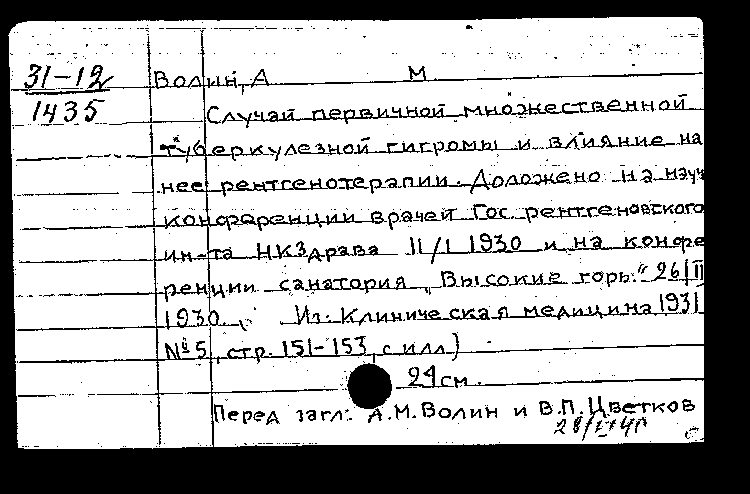 31-12
1435
Волин, А М.
Случай первичной множественной
туберкулезной гигромы и влияние на
нее рентгенотерапии. Доложено на науч
конференции врачей Гос. рентгеновского
ин-та НКЗдрава 11/I 1930 и на конфе
ренции санатория „Высокие горы." 26/II
1930. Из: Клиническая медицина 1931
№ 5, стр. 151-153, с илл.)
24 см.
Перед загл: А.М. Волин и В.П. Цветков